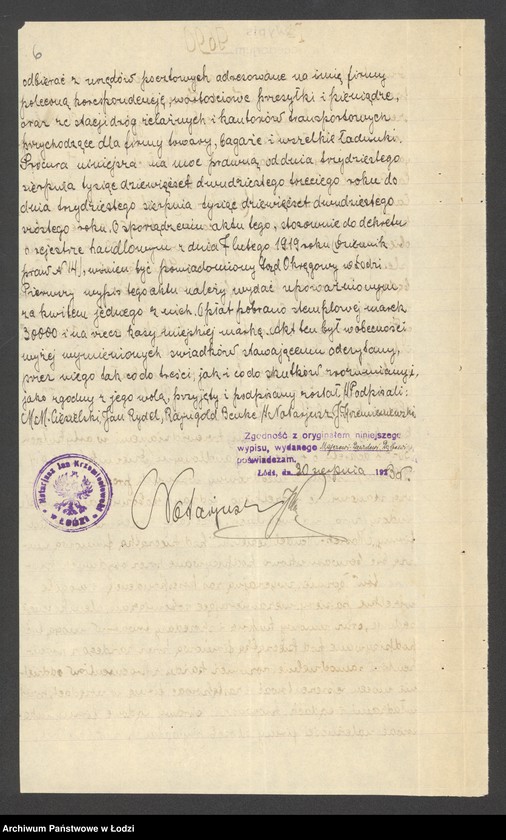 6
odbierać z urzędów pocztowych adresowane na imię firmy
poleconą korespondencję, wartościowe przesyłki i pieniądze,
oraz ze stacji dróg żelaznych i kantorów transportowych
przychodzące dla firmy towary, bagaże i wszelkie ładunki.
Procura niniejsza ma moc prawną od dnia trzydziestego
sierpnia tysiąc dziewięćset dwudziestego trzeciego roku do
dnia trzydziestego sierpnia tysiąc dziewięćset dwudziestego
szóstego roku. O sporządzeniu aktu tego, stosownie do dekretu
o rejestrze handlowym z dnia 7 lutego 1919 roku (Dziennik
praw N 14), winien być powiadomiony Sąd Okręgowy w Łodzi.
Pierwszy wypis tego aktu należy wydać upoważnionym
za kwitem jednego z nich. Opłat pobrano stemplowej marek
30000 i na rzecz kasy miejskiej marek. Akt ten był w obecności
wyżej wymienionych świadków stawającemu odczytany,
przez niego tak co do treści, jak i co do skutków zrozumiany i,
jako zgodny z jego wolą, przyjęty i podpisany został. Podpisali:
M. Jan Rydel, Notarjusz J. Krzemieniewski
Zgodność z oryginałem niniejszego
wypisu, wydanego
poświadczam.
Łódź, dn. 30 sierpnia 1923 r.
Notarjusz Jan Krzemieniewski
w ŁODZI
Notarjusz
Archiwum Państwowe w Łodzi